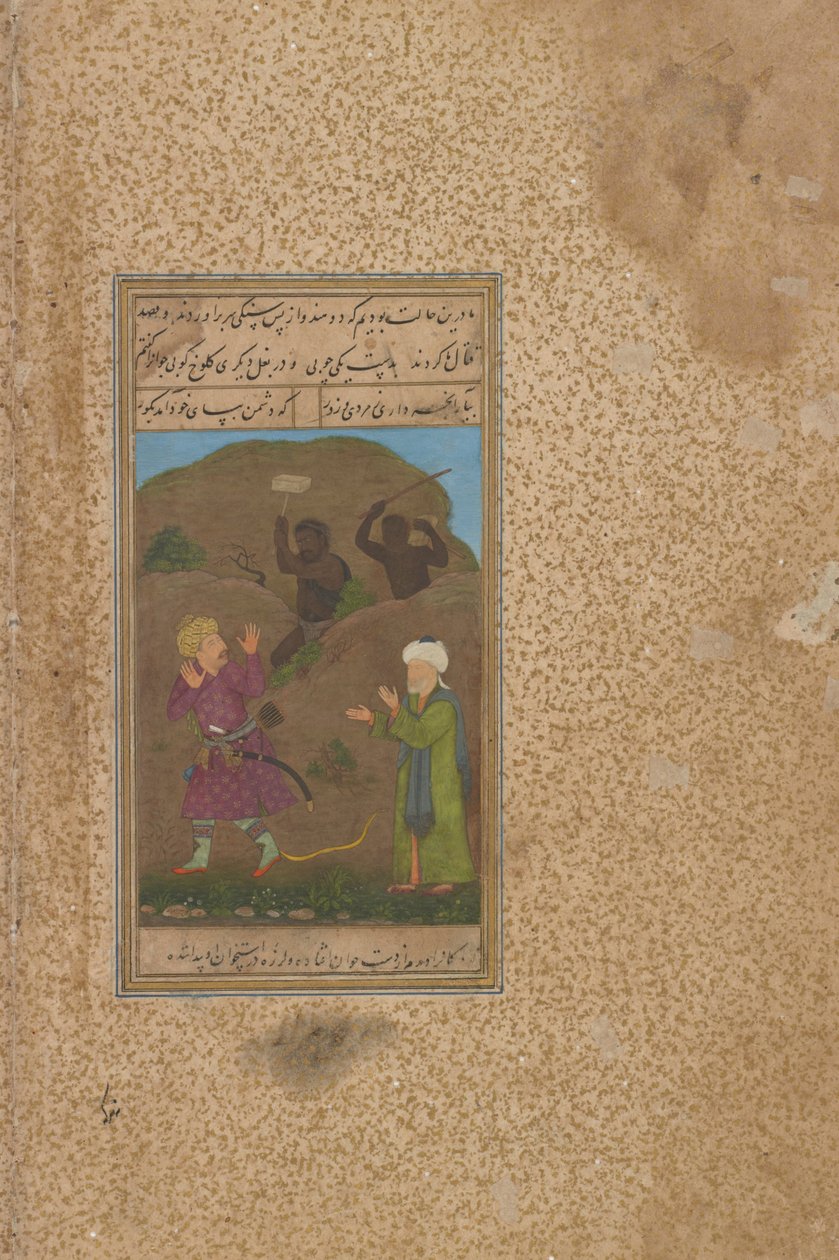 ما درین حالت بودیم که دو هندو از پس سنگی سر برآوردند و قصد
قتال ما کردند بدست یکی چوبی و در بغل دیگری کلوخ کوبی جوانرا گفتم
بیار آنچه داری ز مردی و زور که دشمن بپای خود آمد بگور
کمانرا دیدم از دست جوان افتاده و لرزه در استخوان او پیدا شده